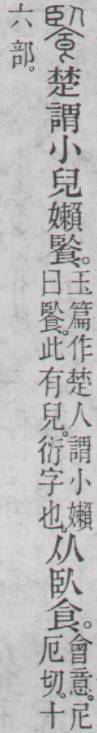 䭆楚謂小兒嬾䭆。玉篇作楚人謂小嬾曰䭆。此有兒。衍字也。从臥食。會意。尼厄切。十
六部。